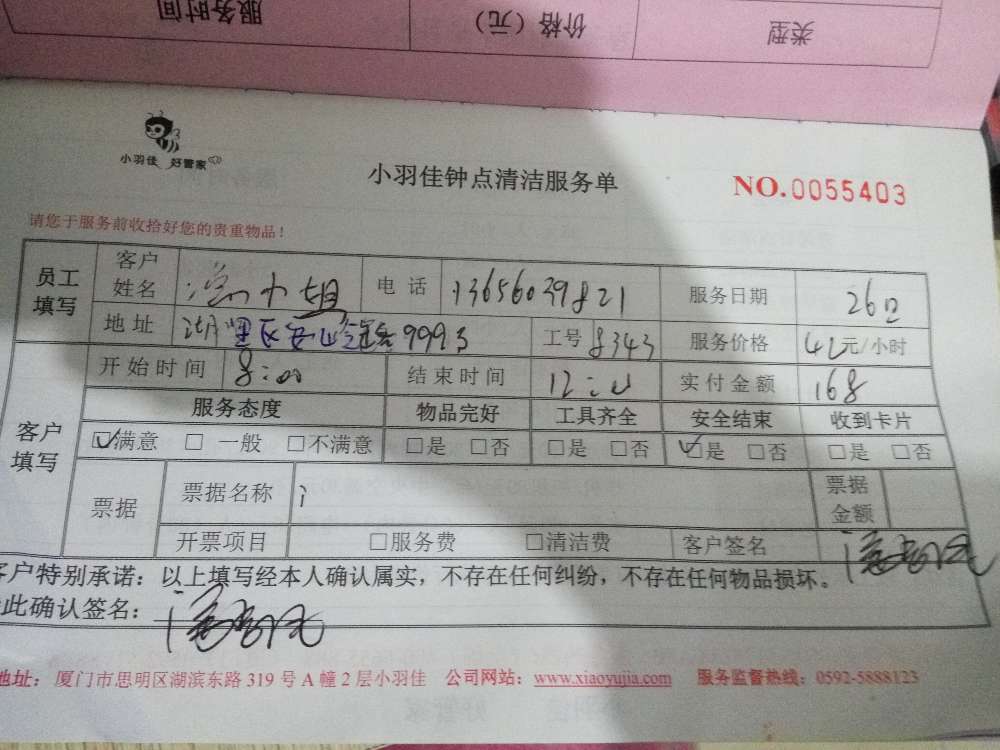 类型 价格（元） 服务时间
小羽佳 好管家
小羽佳钟点清洁服务单 NO.0055403
请您于服务前收拾好您的贵重物品！
员工填写 客户姓名 小姐 电话 13656039821 服务日期 26日
地址 湖里区 9993 工号 8343 服务价格 42元/小时
客户填写 开始时间 8:00 结束时间 12:00 实付金额 168
服务态度 物品完好 工具齐全 安全结束 收到卡片
☑满意 □ 一般 □不满意 □是 □否 □是 □否 ☑是 □否 □是 □否
票据 票据名称 票据金额
开票项目 □服务费 □清洁费 客户签名
客户特别承诺：以上填写经本人确认属实，不存在任何纠纷，不存在任何物品损坏。
此确认签名：
地址：厦门市思明区湖滨东路 319 号 A 幢 2 层小羽佳 公司网站：www.xiaoyujia.com 服务监督热线：0592-5888123